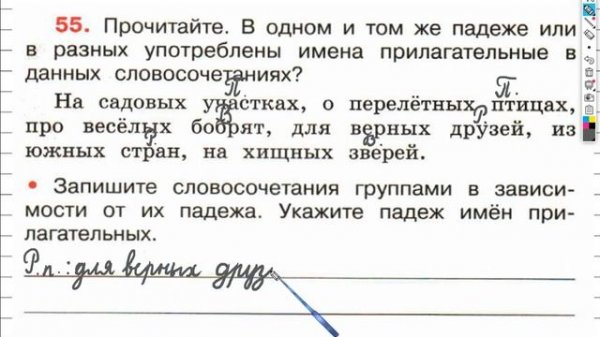 55. Прочитайте. В одном и том же падеже или
в разных употреблены имена прилагательные в
данных словосочетаниях?
П. П.
На садовых участках, о перелётных птицах,
В Р
про весёлых бобрят, для верных друзей, из
Р. В.
южных стран, на хищных зверей.
• Запишите словосочетания группами в зависи-
мости от их падежа. Укажите падеж имён при-
лагательных.
Р.п.: для верных друз